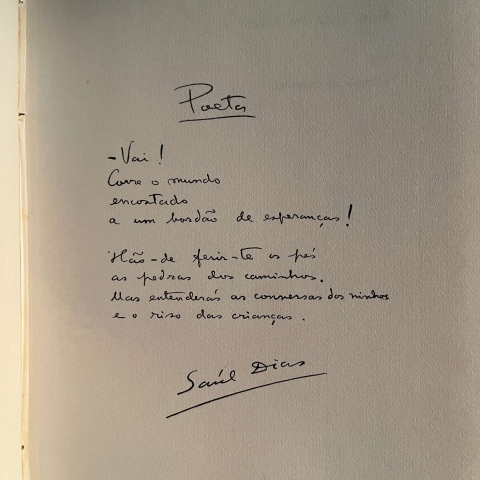 Poeta
- Vai!
Corre o mundo
encostado
a um bordão de esperanças!
Hão-de ferir-te os pés
as pedras dos caminhos.
Mas entenderás as conversas dos ninhos
e o riso das crianças.
Saúl Dias